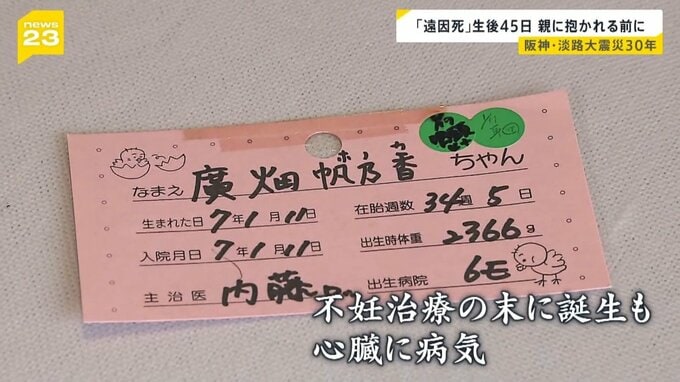 news
23
「遠因死」生後45日 親に抱かれる前に
阪神・淡路大震災30年
なまえ 廣畑 帆乃香 ちゃん
ホノカ
生まれた日 7年1月11日
在胎週数 34週5日
入院月日 7年1月11日
出生時体重 2366g
主治医 内藤
出生病院 6E
不妊治療の末に誕生も
心臓に病気